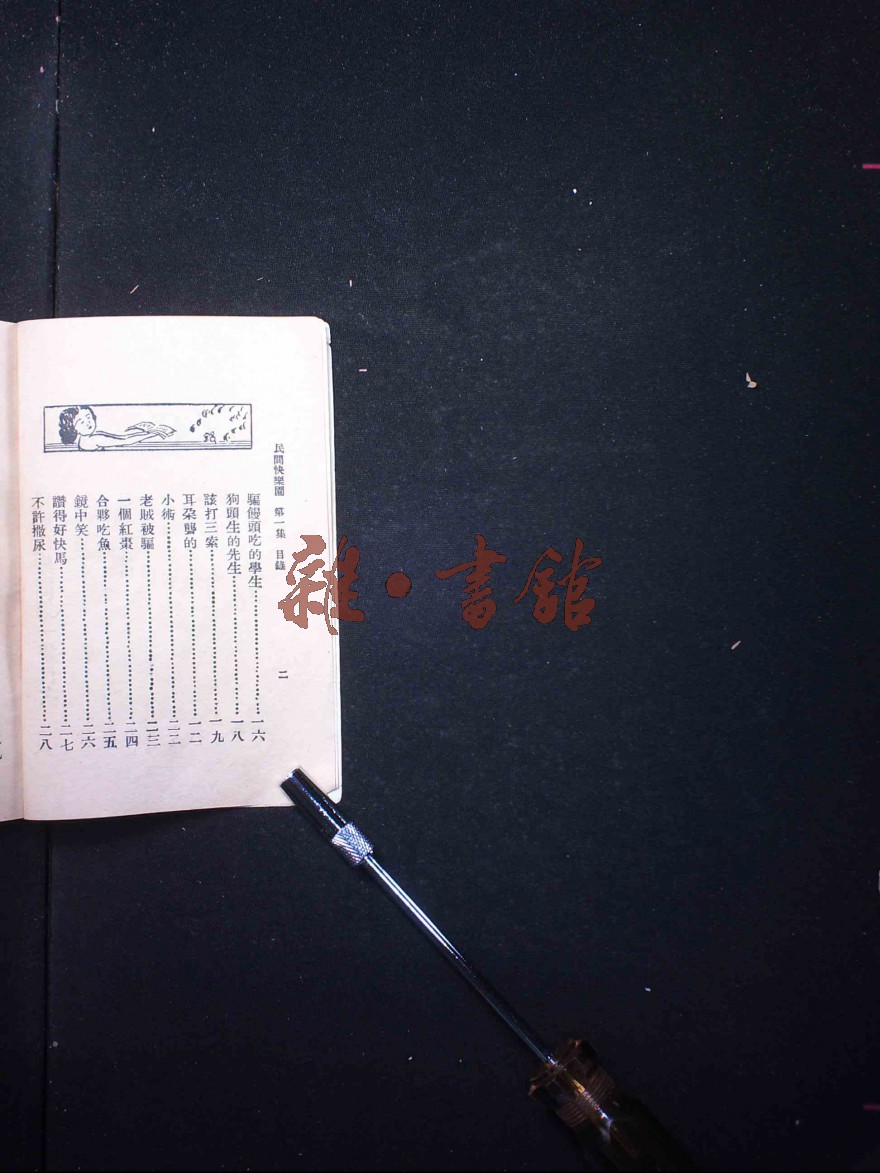 民間快樂園 第一集 目錄 二
騙饅頭吃的學生…………一六
狗頭生的先生…………一八
該打三索…………一九
耳朶聾的…………一二
小術…………二二
老賊被騙…………二三
一個紅棗…………二四
合夥吃魚…………二五
鏡中笑…………二六
讚得好快馬…………二七
不許撒尿…………二八
雜·書館